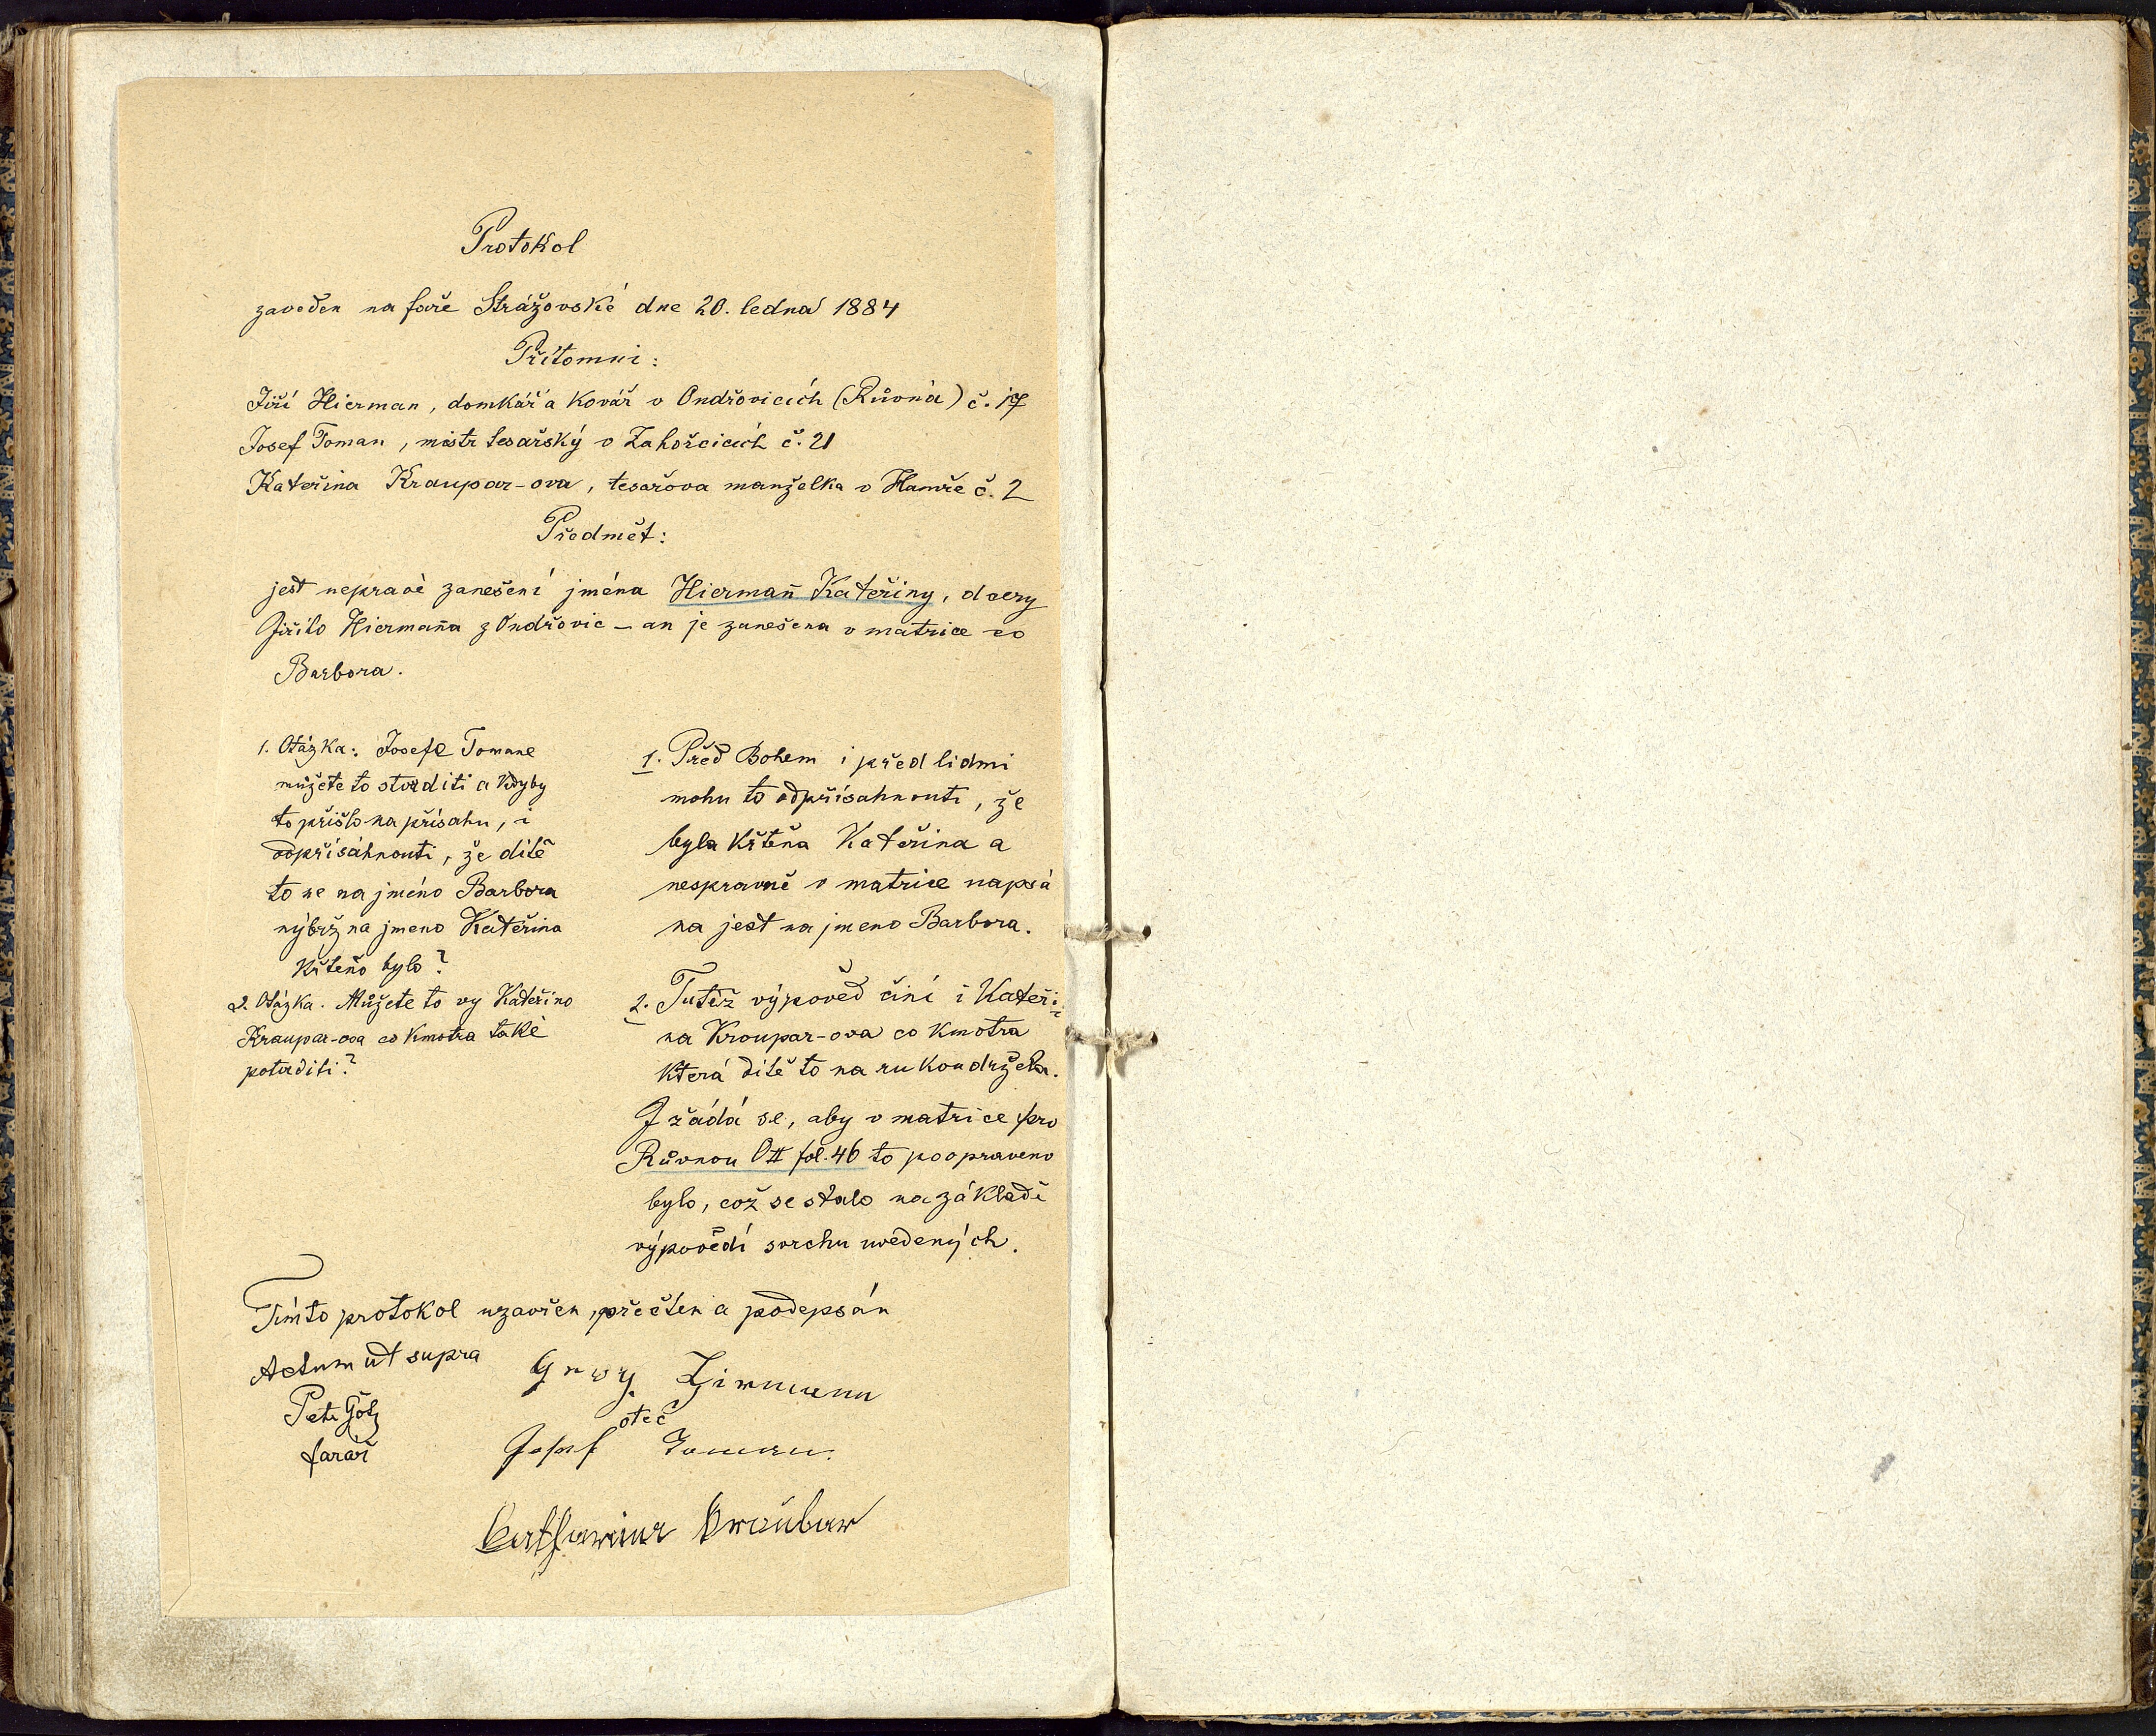 Protokol
zaveden na faře Strážovské dne 20. ledna 1884
Přítomni:
Jiří Hierman, domkář a kovář v Ondřovicích (Růvná) č. 17
Josef Toman, mistr tesařský v Zahořcicích č. 21
Kateřina Kraupar-ova, tesařova manželka v Hamře č. 2
Předmět:
jest nepravé zanešení jména Hiermañ Kateřiny, dcery
Jiřiho Hiermaña z Ondřovic – an je zanešena v matrice co
Barbora.
1. Otázka: Josefe Tomane
můžete to stvrditi a kdyby
to přišlo na přísahu, i
odpřísáhnouti, že dítě
to ne na jméno Barbora
nýbrž na jmeno Kateřina
křteño bylo?
2. Otázka. Můžete to vy Kateřino
Kraupar-ova co kmotra také
potvrditi?
1. Před Bohem i před lidmi
mohu to odpřísahnouti, že
byla křtěna Kateřina a
nespravně v matrice napsá
na jest na jmeno Barbora.
2. Tutéž výpověď čini i Kateři-
na Kroupar-ova co kmotra
která ditě to na rukou držela.
I žádá se, aby v matrice pro
Růvnou OII fol. 46 to poopraveno
bylo, což se stalo na základě
výpovědí svrchu uvedených.
Tímto protokol uzavřen, přečten a podepsán
Actum ut supra
Georg Hirmann
Petr Götz
otec
farář
Josef Toman.
Catharina Kraubar